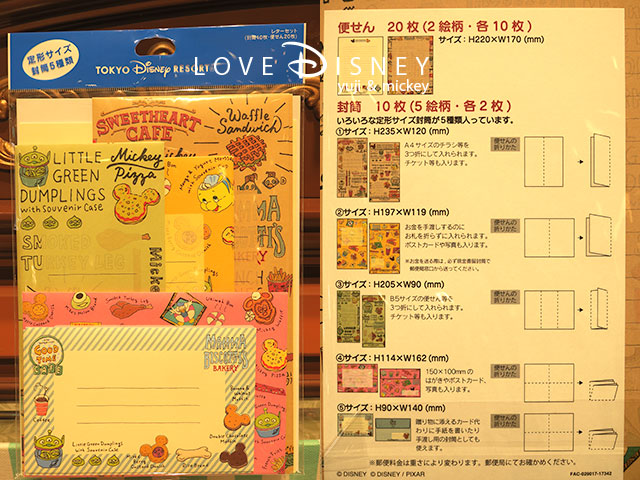 定形サイズ
封筒5種類
レターセット
(封筒10枚・便せん20枚)
TOKYO DISNEY RESORT
LOVE DISNEY
yuji & mickey
SWEETHEART
CAFE
Waffle
Sandwich
LITTLE
GREEN
DUMPLINGS
with Souvenir Case
Mickey
Pizza
SMOKED
TURKEY LEG
MAMA
BISCOTTI'S
BAKERY
GOOD
TIME
Coffee
Little Green Dumplings
with Souvenir Case
Double Chocolate
Muffin
便せん 20枚(2絵柄・各10枚)
サイズ：H220×W170(mm)
封筒 10枚(5絵柄・各2枚)
いろいろな定形サイズ封筒が5種類入っています。
①サイズ：H235×W120(mm)
A4サイズのチラシ等を
3つ折にして入れられます。
チケット等も入ります。
便せんの
折りかた
②サイズ：H197×W119(mm)
お金を手渡しするのに
お札を折らずに入れられます。
ポストカードや写真も入ります。
※お金を送る際は、必ず現金書留封筒で
郵便局窓口から送ってください。
便せんの
折りかた
③サイズ：H205×W90(mm)
B5サイズの便せん等を
3つ折にして入れられます。
チケット等も入ります。
便せんの
折りかた
④サイズ：H114×W162(mm)
150×100mmの
はがきやポストカード、
写真も入ります。
便せんの
折りかた
⑤サイズ：H90×W140(mm)
贈り物に添えるカード代
わりに手紙を書いたり
手渡し用の封筒としても
使えます。
便せんの
折りかた
※郵便料金は重さにより変わります。郵便局にてお確かめください。
© DISNEY © DISNEY / PIXAR
FAC-020017-17342